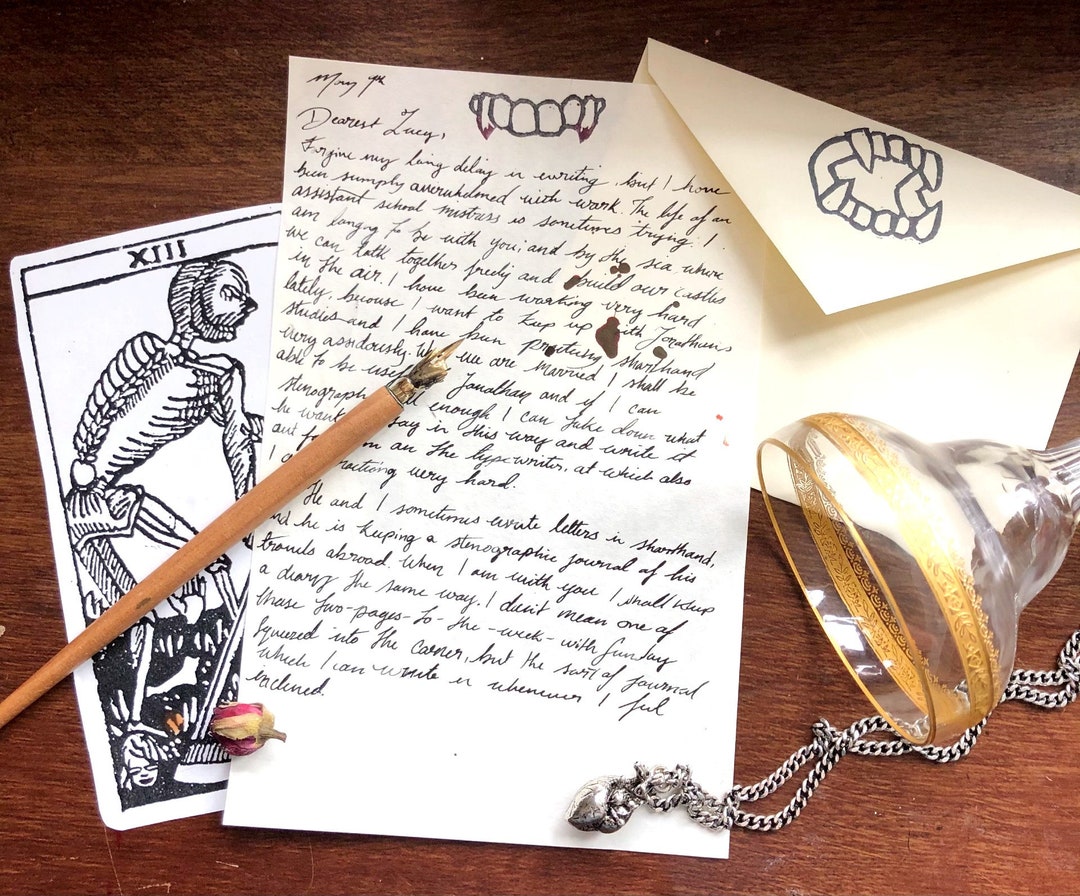 XIII
May 9th
Dearest Lucy,
Forgive my long delay in writing, but I have
been simply overwhelmed with work. The life of an
assistant school mistress is sometimes trying. I
am longing to be with you; and by the sea, where
we can talk together freely and build our castles
in the air. I have been working very hard
lately, because I want to keep up with Jonathan's
studies and I have been practicing shorthand
very assidously. When we are married I shall be
able to be useful Jonathan and if I can
stenograph well enough I can take down what
he want say in this way and write it
out for on the typewriter, at which also
I practicing very hard.
He and I sometimes write letters in shorthand,
and he is keeping a stenographic journal of his
travels abroad. When I am with you I shall keep
a diary the same way. I don't mean one of
those two-pages-to-the-week-with Sunday
squeezed into the corner, but the sort of journal
which I can write in whenever I feel
inclined.